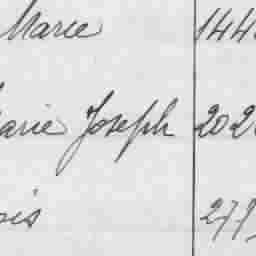 Marie 144
arie Joseph 202
ois 279